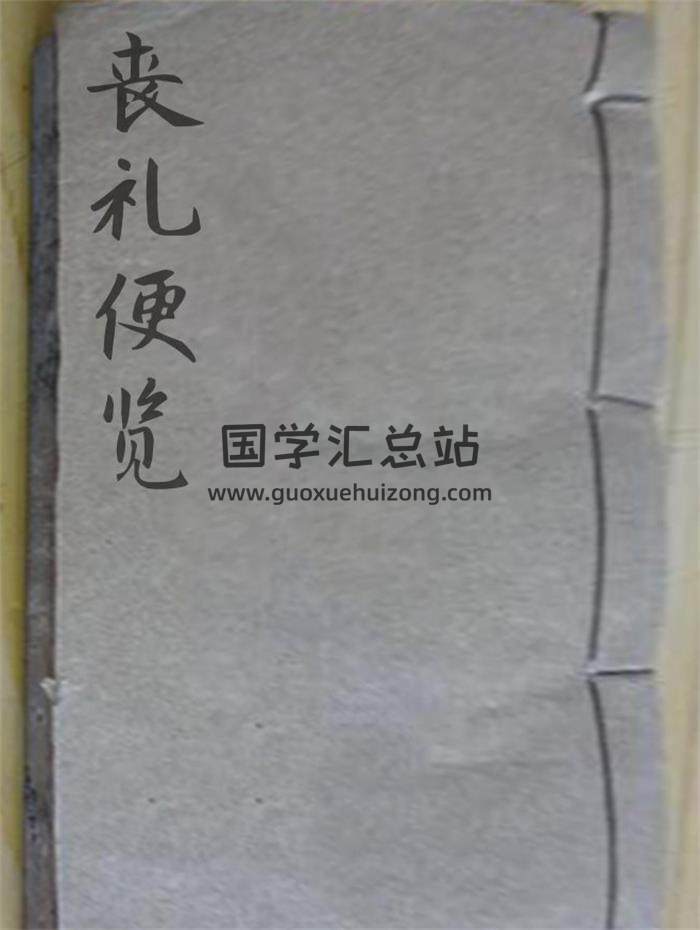 丧礼便览
国学汇总站
www.guoxuehuizong.com